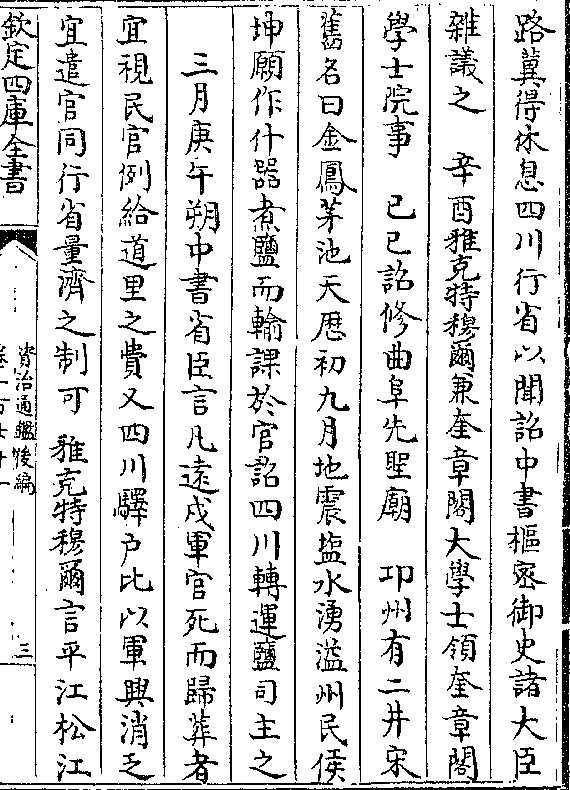 路冀得休息四川行省以聞詔中書樞密御史諸大臣
雜議之　辛酉雅克特穆爾兼奎章閣大學士領奎章閣
學士院事　己巳詔修曲阜先聖廟　邛州有二井宋
舊名曰金鳳茅池天厯初九月地震塩水湧溢州民侯
坤願作什器煮鹽而輸課於官詔四川轉運鹽司主之
三月庚午朔中書省臣言凡遠戍軍官死而歸葬者
宜視民官例給道里之費又四川驛户比以軍興消乏
宜遣官同行省量濟之制可　雅克特穆爾言平江松江
欽定四庫全書
資治通鑑後編
卷一百七十一
三